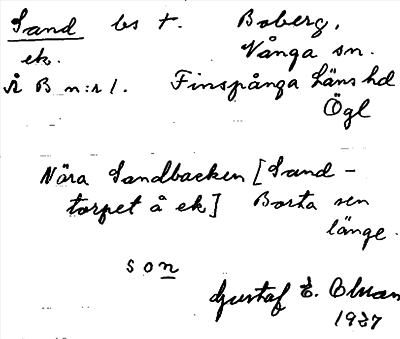 Sand bs t. Boberg,
ek. Vånga sn.
Å B n:r 1. Finspånga läns hd
Ögl
Nära Sandbacken [Sand-
torpet å ek] Borta sen
länge.
son
Gustaf E. Olsson
1937